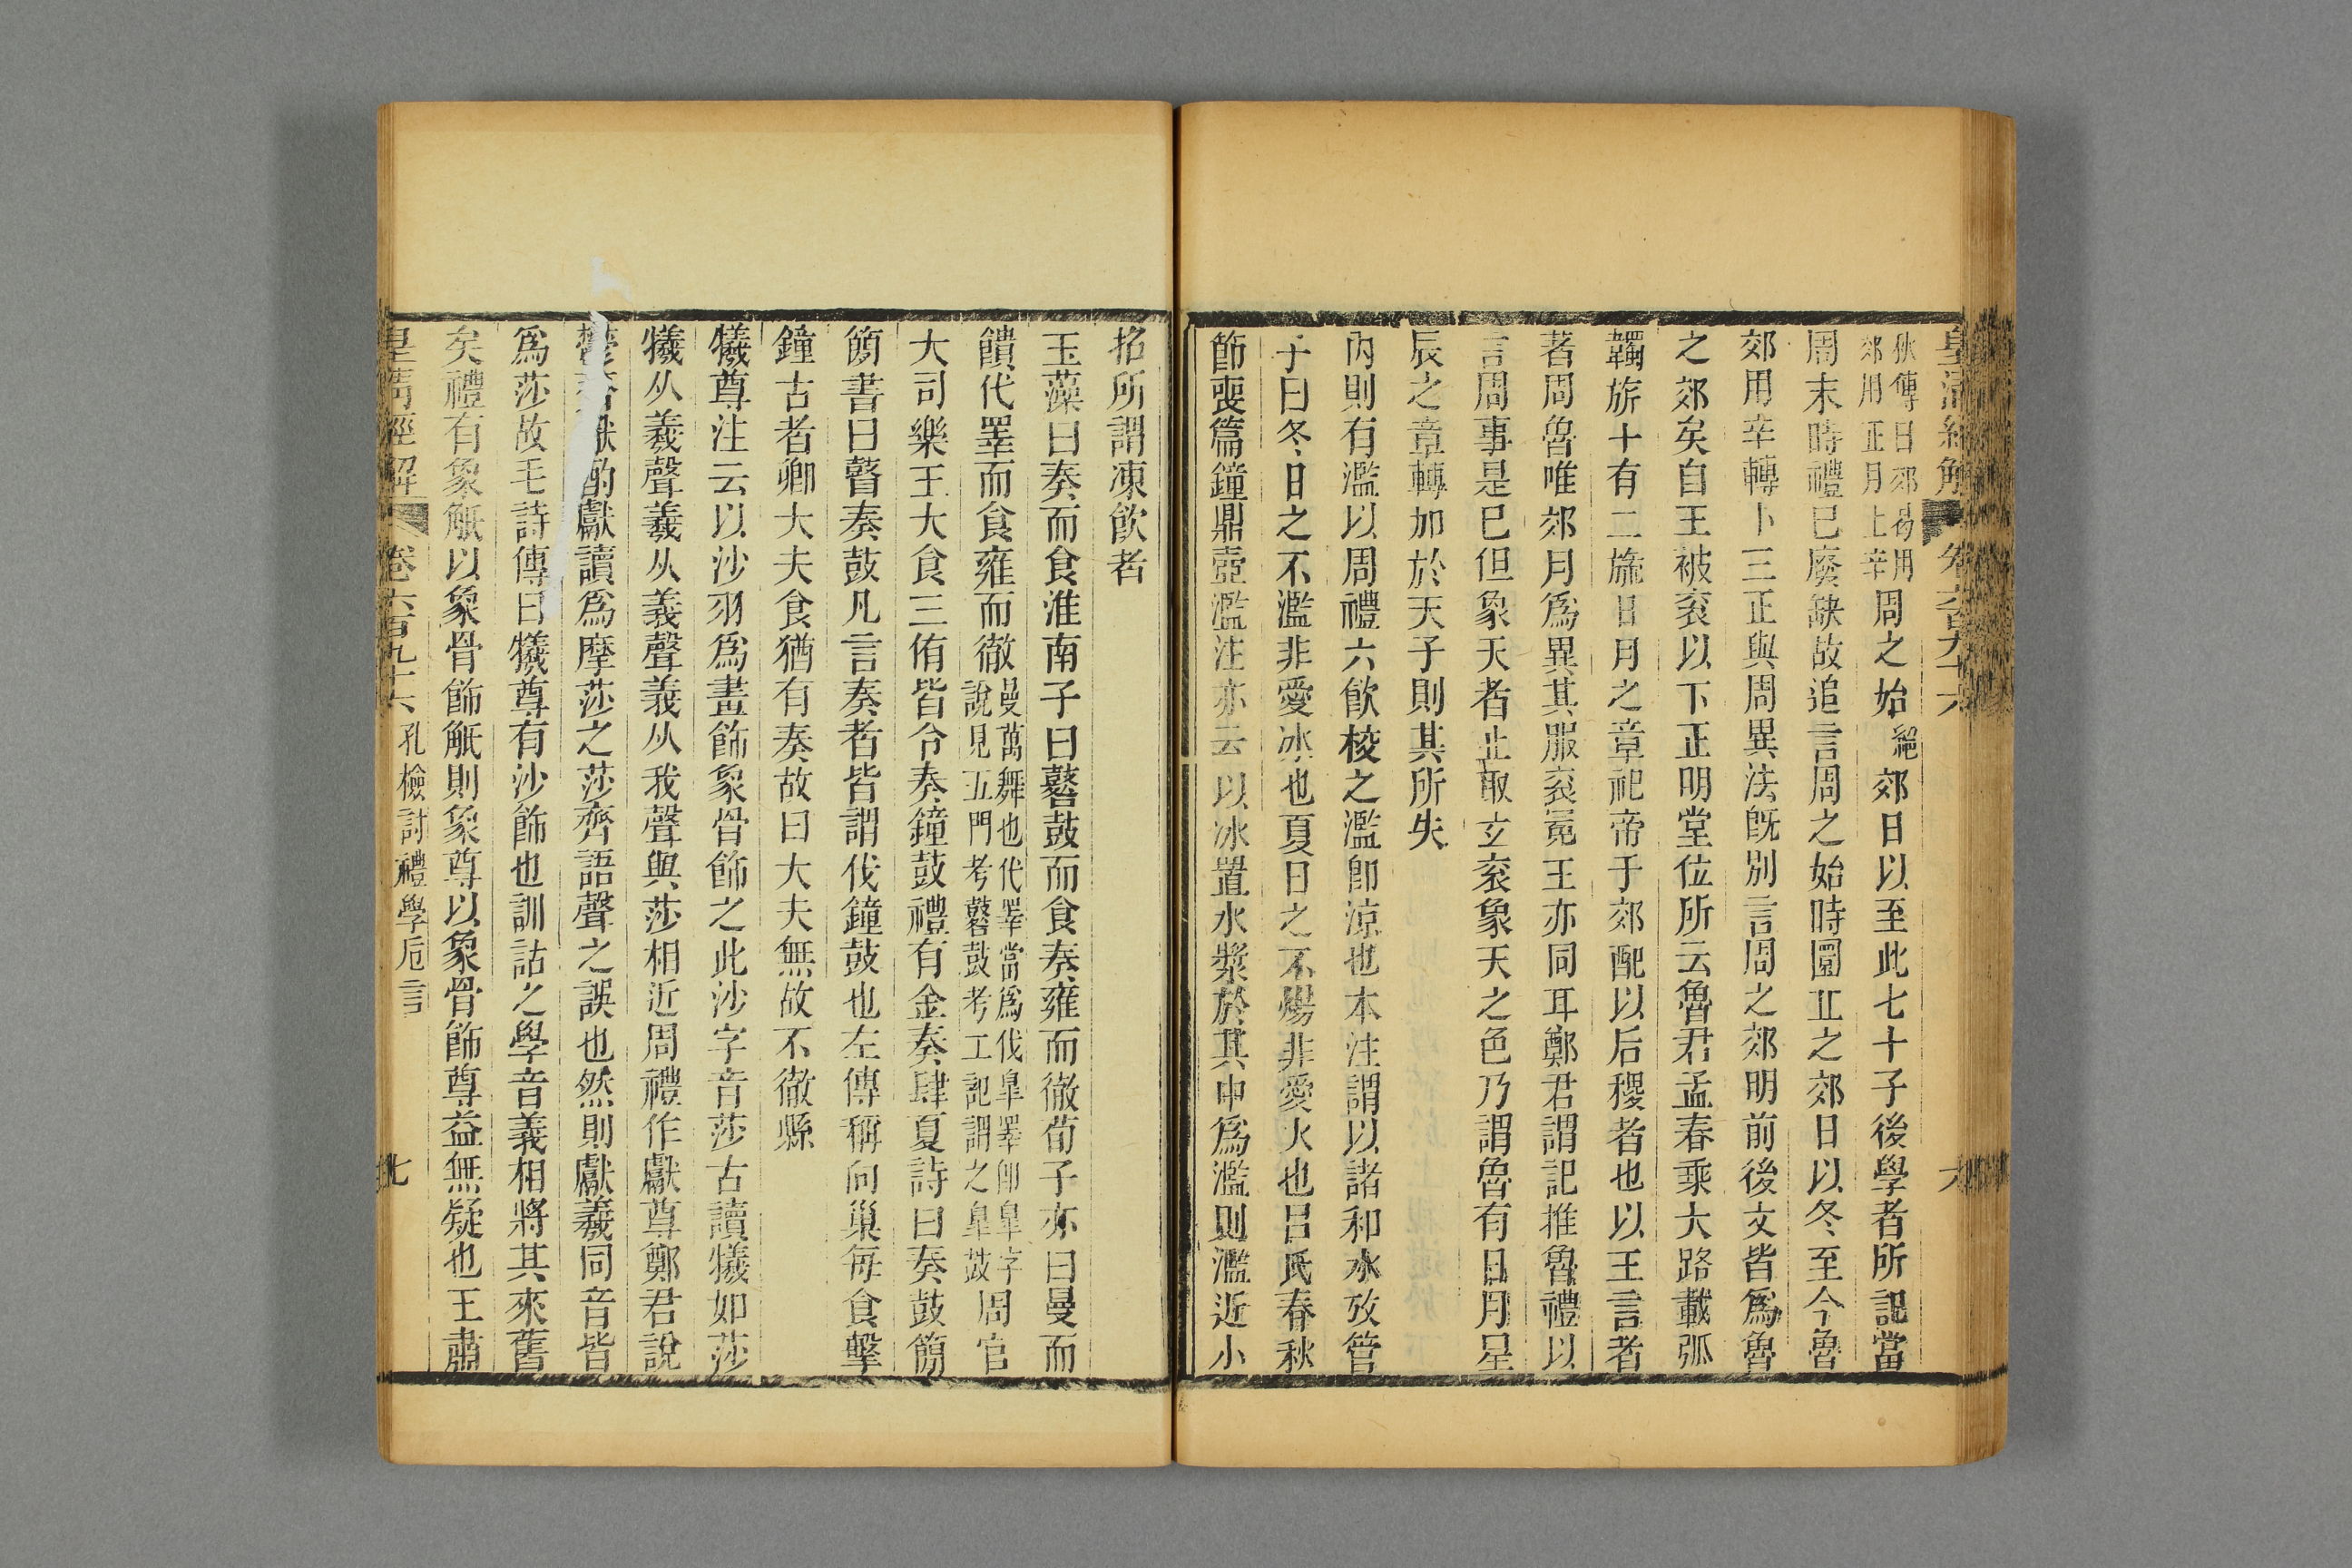 皇清經解 卷六百九十六 六
狄傳曰郊曷用
郊用正月上辛
周之始絕郊日以至此七十子後學者所記當
周末時禮已廢缺故追言周之始時圜丘之郊日以冬至今魯
郊用辛轉卜三正與周異法旣別言周之郊明前後文皆爲魯
之郊矣自王被衮以下正明堂位所云魯君孟春乘大路載弧
韣旂十有二旒日月之章祀帝于郊配以后稷者也以王言者
著周魯唯郊月爲異其服衮冕王亦同耳鄭君謂記推魯禮以
言周事是已但象天者止取玄衮象天之色乃謂魯有日月星
辰之章轉加於天子則其所失
內則有濫以周禮六飮校之濫卽涼也本注謂以諸和水攷管
子曰冬日之不濫非愛冰也夏日之不煬非愛火也呂氏春秋
節喪篇鐘鼎壺濫注亦云以冰置水漿於其中爲濫則濫近小
招所謂凍飮者
玉藻曰奏而食淮南子曰鼛鼓而食奏雍而徹荀子亦曰曼而
饋代睪而食雍而徹
曼萬舞也代睪當爲伐皐睪卽皐字
說見五門考鼛鼓考工記謂之皐鼓
周官
大司樂王大食三侑皆令奏鐘鼓禮有金奏肆夏詩曰奏鼓簡
簡書曰瞽奏鼓凡言奏者皆謂伐鐘鼓也左傳稱向巢每食擊
鐘古者卿大夫食猶有奏故曰大夫無故不徹縣
犧尊注云以沙羽爲畫飾象骨飾之此沙字音莎古讀犧如莎
犧从羲聲羲从義聲義从我聲與莎相近周禮作獻尊鄭君說
鬱齊獻酌獻讀爲摩莎之莎齊語聲之誤也然則獻羲同音皆
爲莎故毛詩傳曰犧尊有沙飾也訓詁之學音義相將其來舊
矣禮有象觝以象骨飾觝則象尊以象骨飾尊益無疑也王肅
皇清經解 卷六百九十六 孔檢討禮學卮言 七